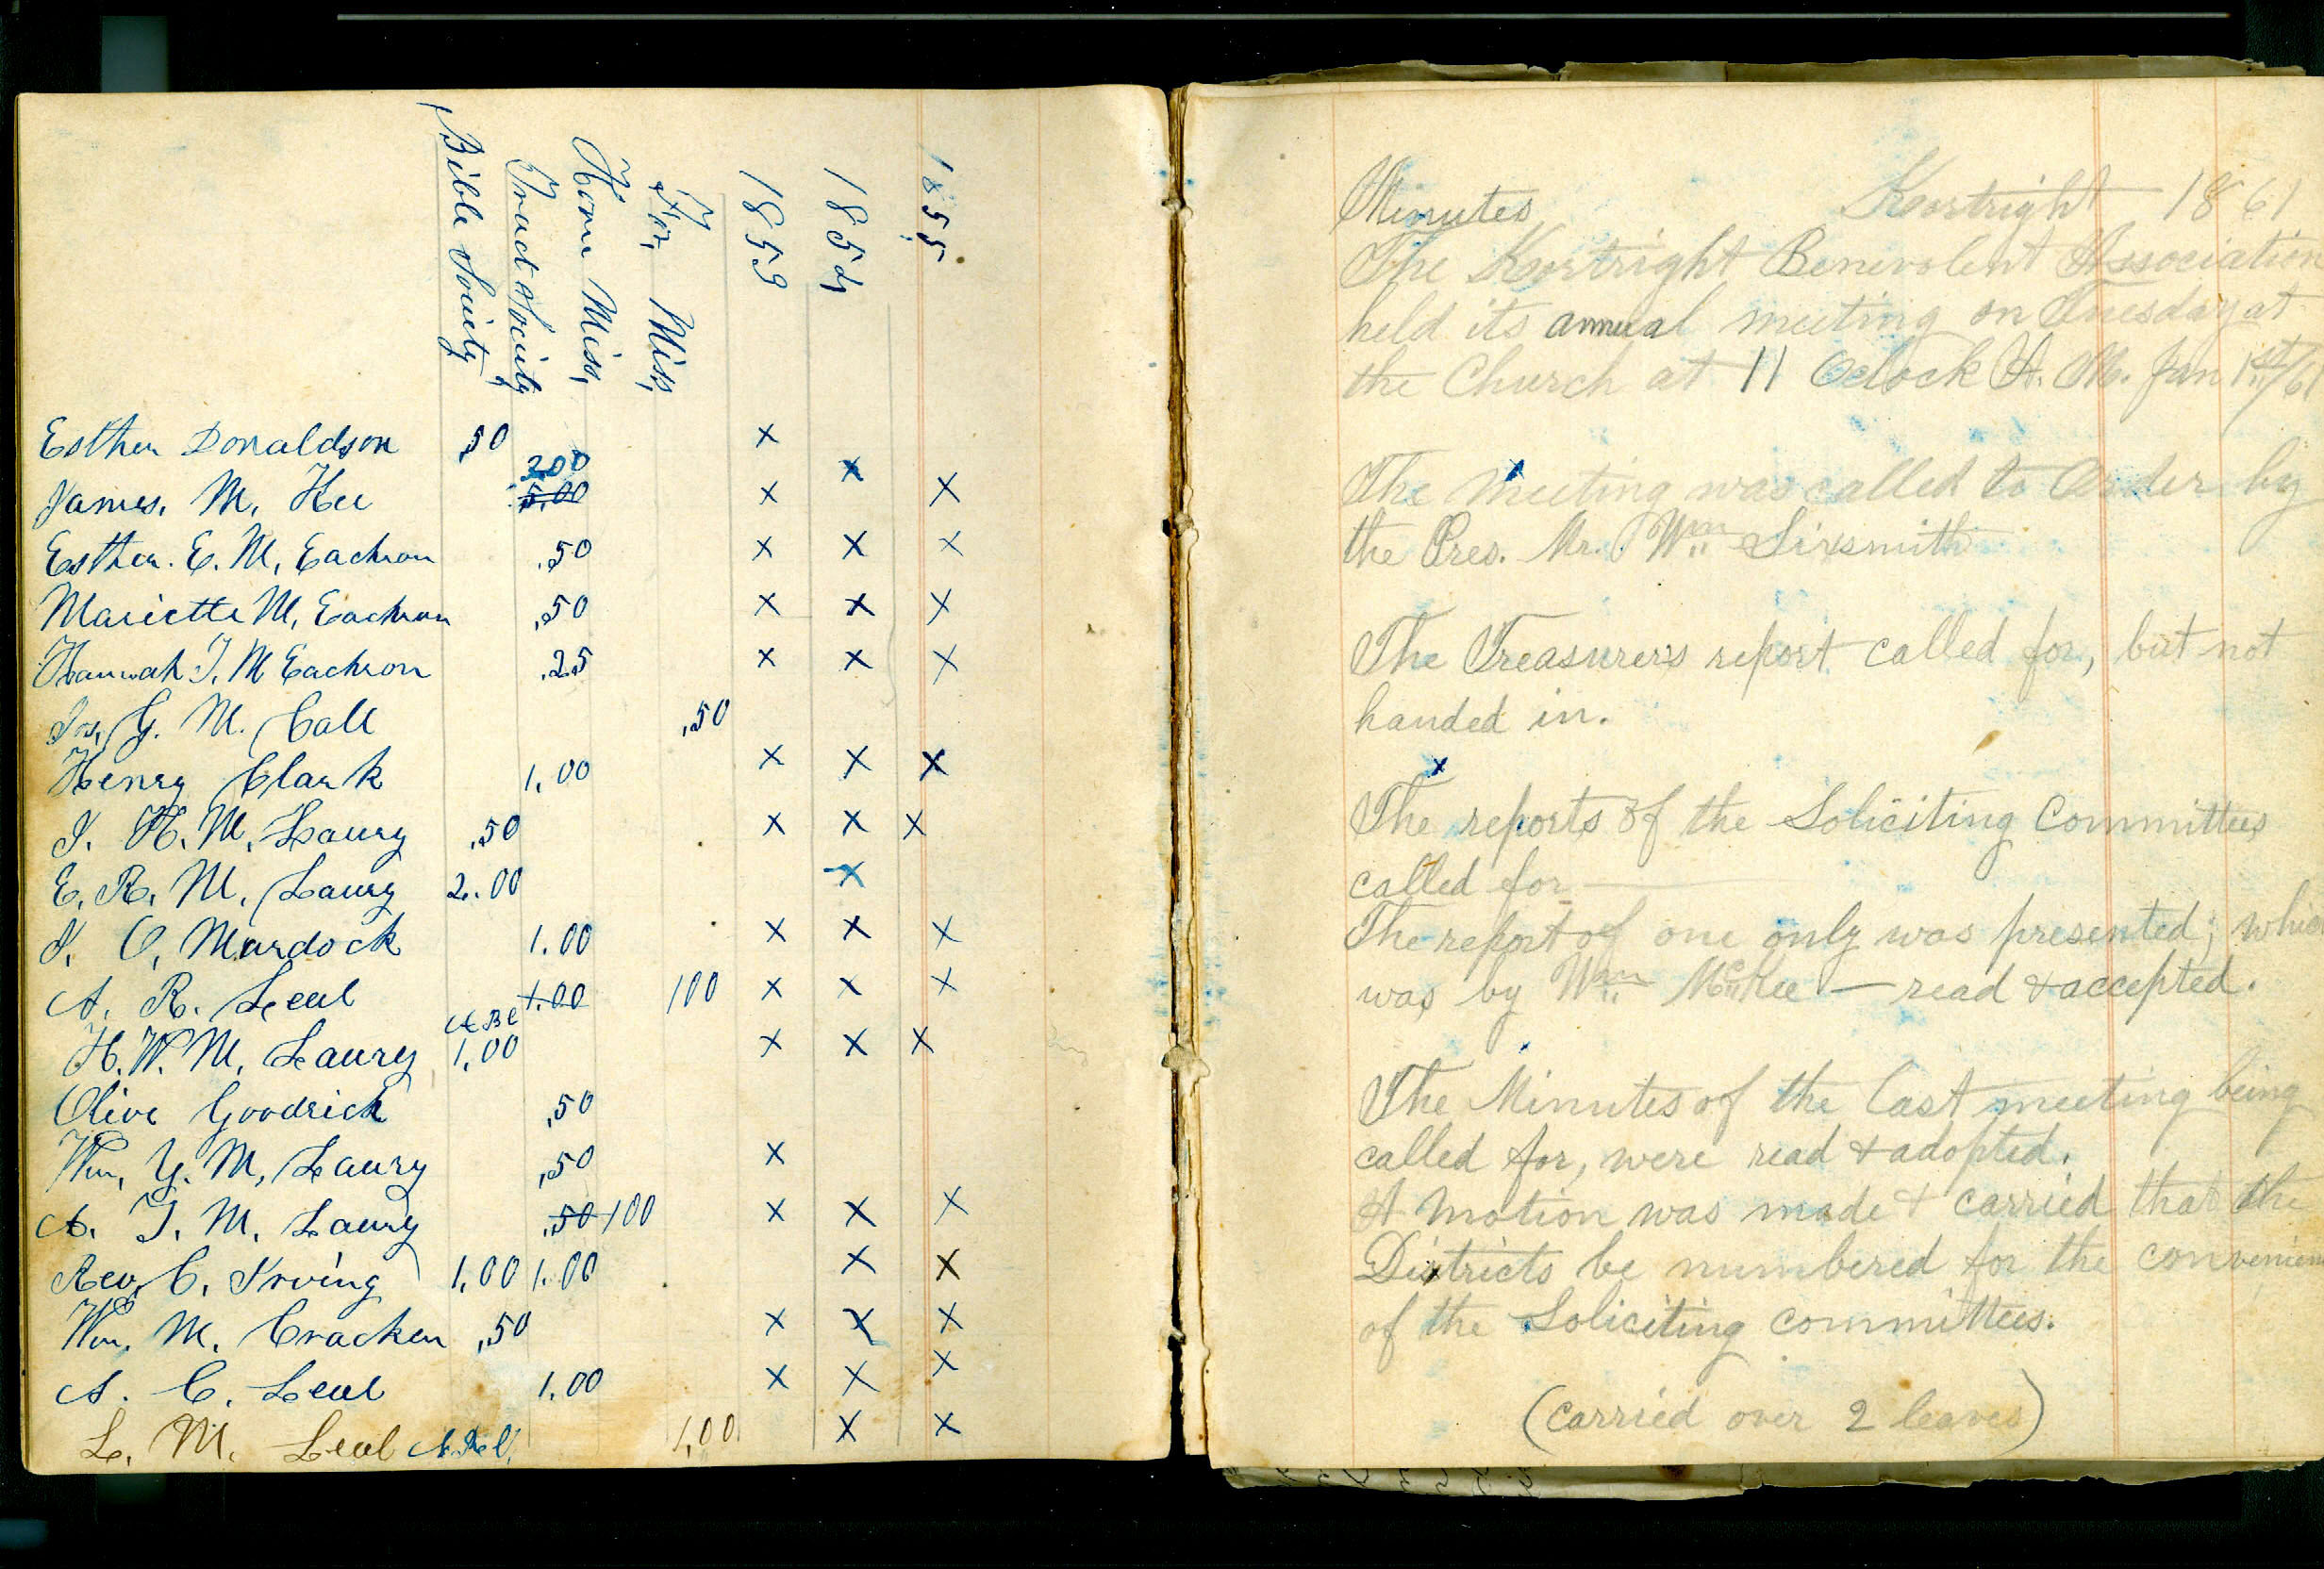 Bible Society, Tract Society Home Miss, For, Miss, 1853 1854 1855
Esther Donaldson ,50 x
James, M, Kee 200 5,00 x x x
Esther. E. M, Eachron .50 x x x
Mariette M, Eachron ,50 x x x
Hannah T. M Eachron .25 x x x
Jos, G. M. Call ,50
Henry Clark 1,00 x x x
J. H. M, Laury ,50 x x x
E. R, M, Laury 2.00 x
J, O, Murdock 1.00 x x x
A. R. Leal 1.00 100 x x x
H. W. M, Laury 1,00 x x x
Olive Goodrich ,50
Wm, Y. M, Laury ,50 x
A. T. M, Laury .50 100 x x x
Rev, C, Irving 1,00 1.00 x x
Wm, M, Cracken ,50 x x x
A. C, Leal 1.00 x x x
L, M, Leal 1,00 x x
Minutes Kortright 1861
The Kortright Benevolent Association
held its annual meeting on Tuesday at
the Church at 11 Oclock A. M. Jan 1st/61
The meeting was called to Order by
the Pres. Mr. Wm Sixsmith
The Treasurers report called for, but not
handed in.
x
The reports of the Soliciting Committees
called for
The report of one only was presented; which
was by Wm McKee — read & accepted.
The Minutes of the last meeting being
called for, were read & adopted.
A motion was made & carried that the
Districts be numbered for the convenien
of the Soliciting committees.
(carried over 2 leaves)